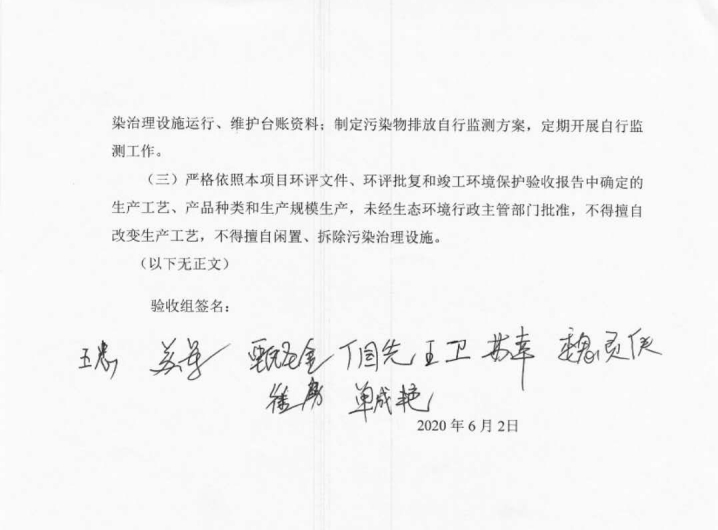 染治理设施运行、维护台账资料；制定污染物排放自行监测方案，定期开展自行监
测工作。
（三）严格依照本项目环评文件、环评批复和竣工环境保护验收报告中确定的
生产工艺、产品种类和生产规模生产，未经生态环境行政主管部门批准，不得擅自
改变生产工艺，不得擅自闲置、拆除污染治理设施。
（以下无正文）
验收组签名：
丁国先 王卫
单成艳
2020 年 6 月 2日